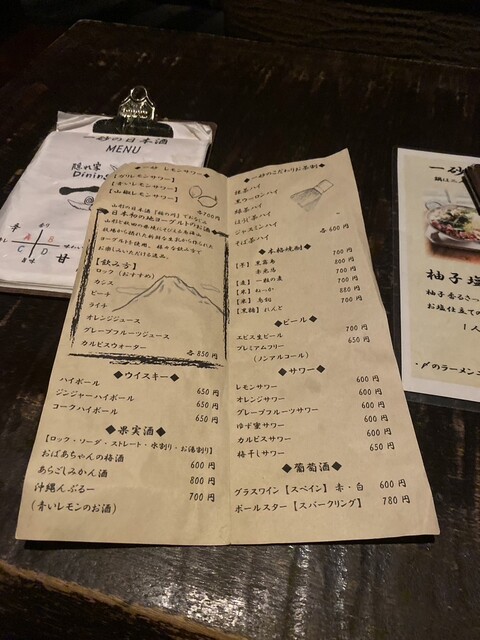 一妙の日本酒
MENU
隠れ家
Dining
辛
甘
A
B
C
D
◆一妙 レモンサワー◆
【ガリレモンサワー】
【青いレモンサワー】
【山椒レモンサワー】
各700円
日本初の地ヨーグルトのお酒
【飲み方】
ロック（おすすめ）
カシス
ピーチ
ライチ
オレンジジュース
グレープフルーツジュース
カルピスウォーター
各850円
◆ウイスキー◆
ハイボール 650円
ジンジャーハイボール 650円
コークハイボール 650円
◆果実酒◆
【ロック・ソーダ・ストレート・水割り・お湯割り】
おばあちゃんの梅酒 600円
あらごしみかん酒 800円
沖縄んぶるー 700円
（青いレモンのお酒）
◆一妙のこだわりお茶割◆
抹茶ハイ
黒ウーロンハイ
緑茶ハイ
ほうじ茶ハイ
ジャスミンハイ
そば茶ハイ
各600円
◆本格焼酎◆
【芋】黒霧島 700円
赤兎馬 800円
【麦】一粒の麦 700円
【米】 880円
【米】鳥飼 700円
【黒糖】れんと 700円
◆ビール◆
エビス生ビール 700円
プレミアムフリー 650円
（ノンアルコール）
◆サワー◆
レモンサワー 600円
オレンジサワー 600円
グレープフルーツサワー 600円
ゆず蜜サワー 600円
カルピスサワー 600円
梅干しサワー 650円
◆葡萄酒◆
グラスワイン【スペイン】赤・白 600円
ポールスター【スパークリング】 780円
柚子塩
柚子香るさっ
お塩仕立ての
1人
・〆のラーメン